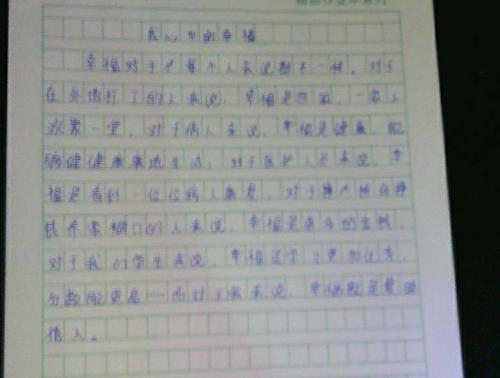 我心中的幸福
幸福对于每个人来说都不一样。对于
在外打工的人来说，幸福是回家，一家人
欢聚一堂，对于病人来说，幸福是健康，能
够健健康康地生活，对于医护人员来说，幸
福是看到一位位病人康复，对于
钱养家糊口的人来说，幸福是更多的金钱，
对于我们学生来说，幸福是学习更加优秀，
分数能更高……而对于我来说，幸福就是
人。